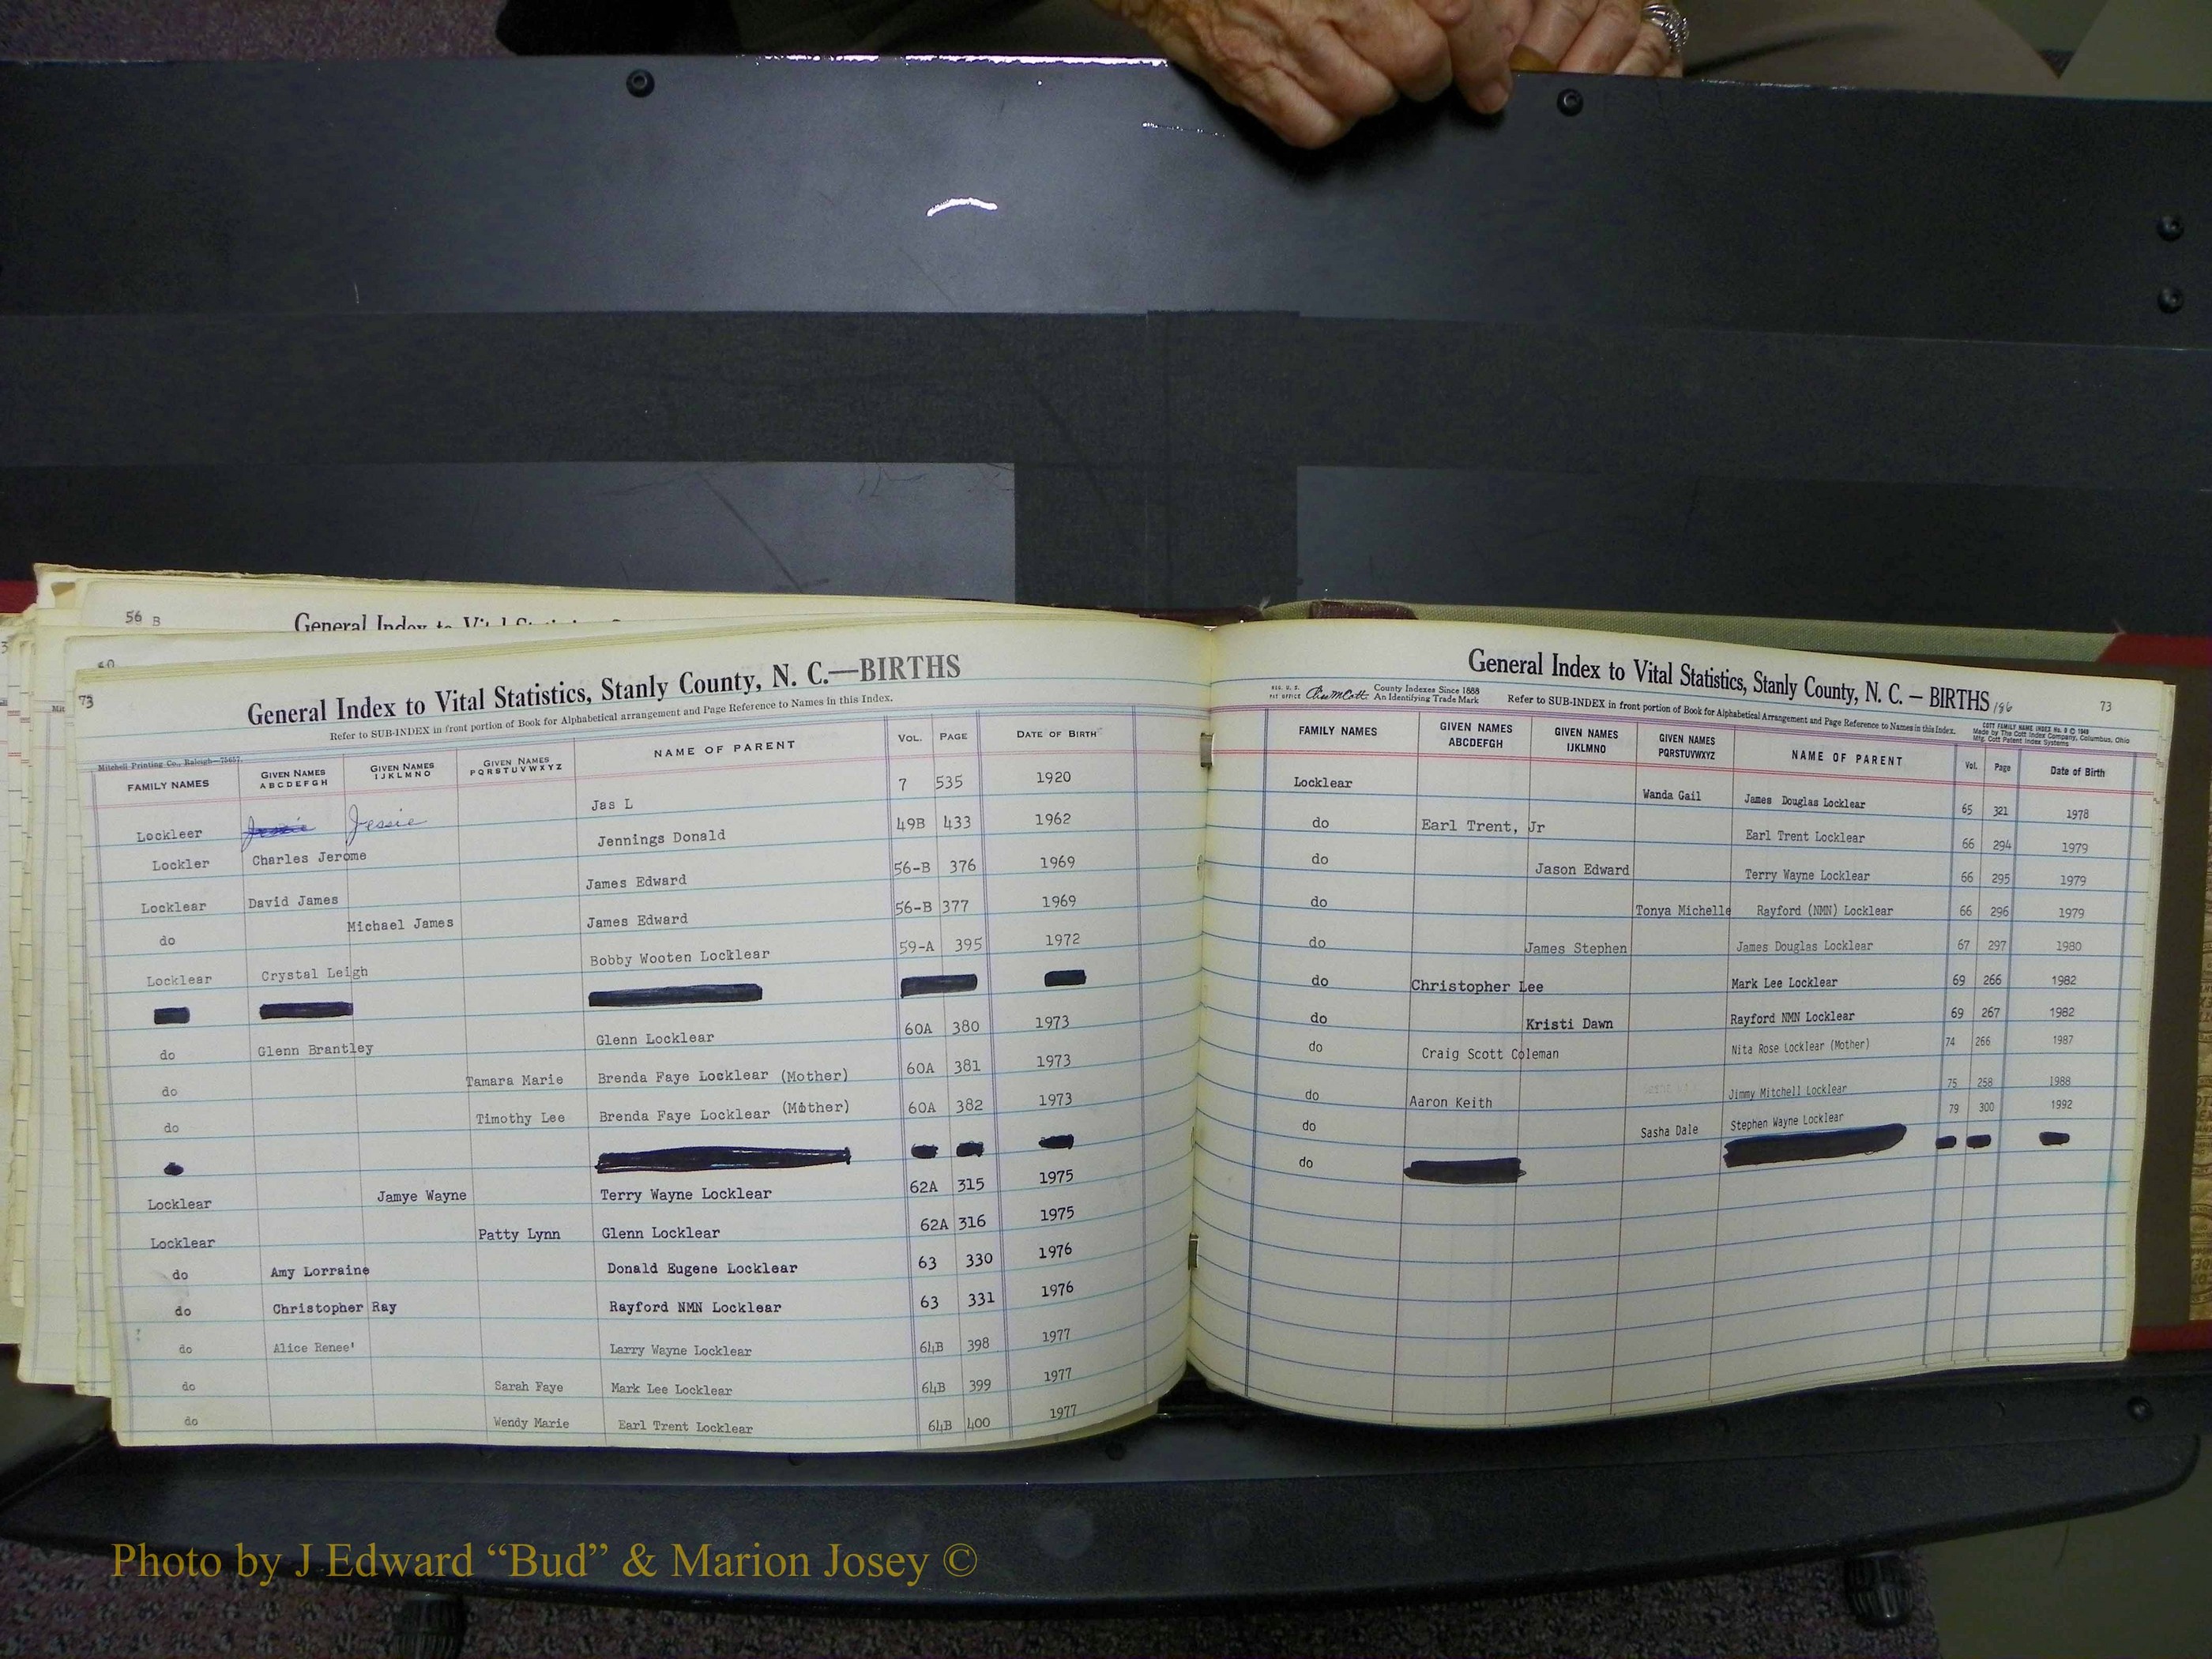 56 B
General Index to Vital Statistics
60
73
General Index to Vital Statistics, Stanly County, N. C.—BIRTHS
Refer to SUB-INDEX in front portion of Book for Alphabetical arrangement and Page Reference to Names in this Index.
Mitchell Printing Co., Raleigh—75657.
FAMILY NAMES GIVEN NAMES ABCDEFGH GIVEN NAMES IJKLMNO GIVEN NAMES PQRSTUVWXYZ NAME OF PARENT VOL. PAGE DATE OF BIRTH
Lockleer Jessie Jessie Jas L 7 535 1920
Lockler Charles Jerome Jennings Donald 49B 433 1962
Locklear David James James Edward 56-B 376 1969
do Michael James James Edward 56-B 377 1969
Locklear Crystal Leigh Bobby Wooten Locklear 59-A 395 1972
do Glenn Brantley Glenn Locklear 60A 380 1973
do Tamara Marie Brenda Faye Locklear (Mother) 60A 381 1973
do Timothy Lee Brenda Faye Locklear (Mother) 60A 382 1973
Locklear Jamye Wayne Terry Wayne Locklear 62A 315 1975
Locklear Patty Lynn Glenn Locklear 62A 316 1975
do Amy Lorraine Donald Eugene Locklear 63 330 1976
do Christopher Ray Rayford NMN Locklear 63 331 1976
do Alice Renee' Larry Wayne Locklear 64B 398 1977
do Sarah Faye Mark Lee Locklear 64B 399 1977
do Wendy Marie Earl Trent Locklear 64B 400 1977
General Index to Vital Statistics, Stanly County, N. C. — BIRTHS 186 73
REG. U. S. PAT OFFICE County Indexes Since 1888 An Identifying Trade Mark
Refer to SUB-INDEX in front portion of Book for Alphabetical Arrangement and Page Reference to Names in this Index.
COTT FAMILY NAME INDEX No. 9 © 1949
Made by The Cott Index Company, Columbus, Ohio
Mfg. Cott Patent Index Systems
FAMILY NAMES GIVEN NAMES ABCDEFGH GIVEN NAMES IJKLMNO GIVEN NAMES PQRSTUVWXYZ NAME OF PARENT Vol. Page Date of Birth
Locklear Wanda Gail James Douglas Locklear 65 321 1978
do Earl Trent, Jr Earl Trent Locklear 66 294 1979
do Jason Edward Terry Wayne Locklear 66 295 1979
do Tonya Michelle Rayford (NMN) Locklear 66 296 1979
do James Stephen James Douglas Locklear 67 297 1980
do Christopher Lee Mark Lee Locklear 69 266 1982
do Kristi Dawn Rayford NMN Locklear 69 267 1982
do Craig Scott Coleman Nita Rose Locklear (Mother) 74 266 1987
do Aaron Keith Jimmy Mitchell Locklear 75 258 1988
do Sasha Dale Stephen Wayne Locklear 79 300 1992
do
Photo by J Edward “Bud” & Marion Josey ©